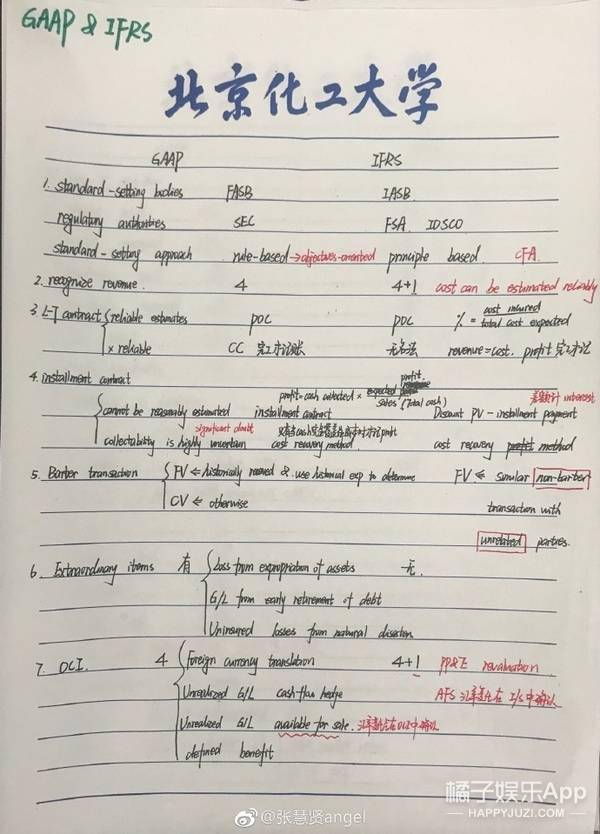 GAAP & IFRS
北京化工大学
GAAP IFRS
1. standard-setting bodies FASB IASB
regulatory authorities SEC FSA IOSCO
standard-setting approach rule-based→objectives-oriented principle based CFA
2. recognize revenue. 4 4+1 cost can be estimated reliably
3. L-T contract { reliable estimates POC POC % = cost incurred / total cost expected
× reliable CC 完工才记账 无名法 revenue=cost. profit 完工才记
4. installment contract profit=cash collected × expected profit / sales (Total cash)
cannot be reasonably estimated installment contract Discount PV - installment payment interest
significant doubt
collectability is highly uncertain cost recovery method cost recovery method
5. Barter transaction { FV ⇐ historically received & use historical exp to determine FV ⇐ similar non-barter
CV ⇐ otherwise transaction with
unrelated parties.
6. Extraordinary items 有 { Loss from expropriation of assets 无.
G/L from early retirement of debt
Uninsured losses from natural disaster
7. OCI. 4 { Foreign currency translation 4+1 PP&E revaluation
Unrealized G/L cash-flow hedge AFS 汇率差在 I/S 中确认
Unrealized G/L available for sale. 汇率差在OCI中确认
defined benefit
@张慧贤angel
橘子娱乐App
HAPPYJUZI.COM